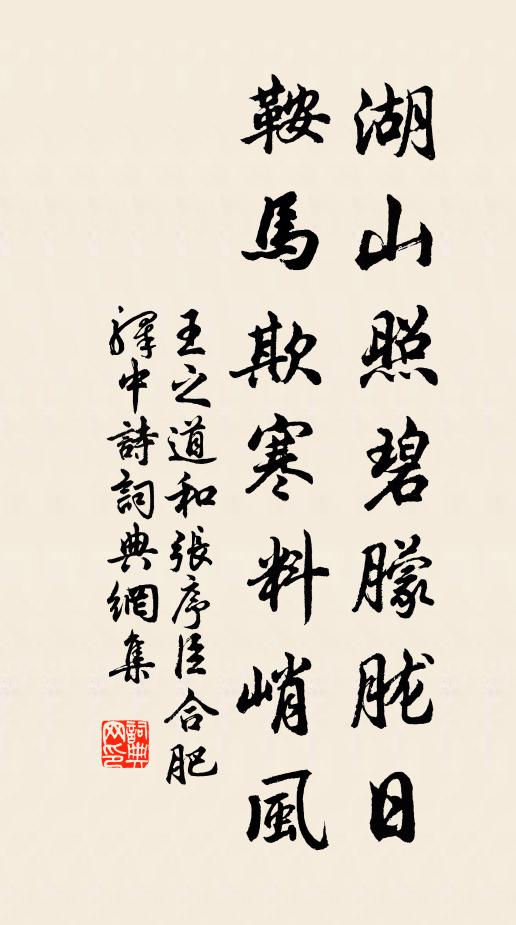 湖山照碧朦胧日
鞍馬欺寒料峭風
王之道和張序臣合肥
驛中詩詞典網集
詞典